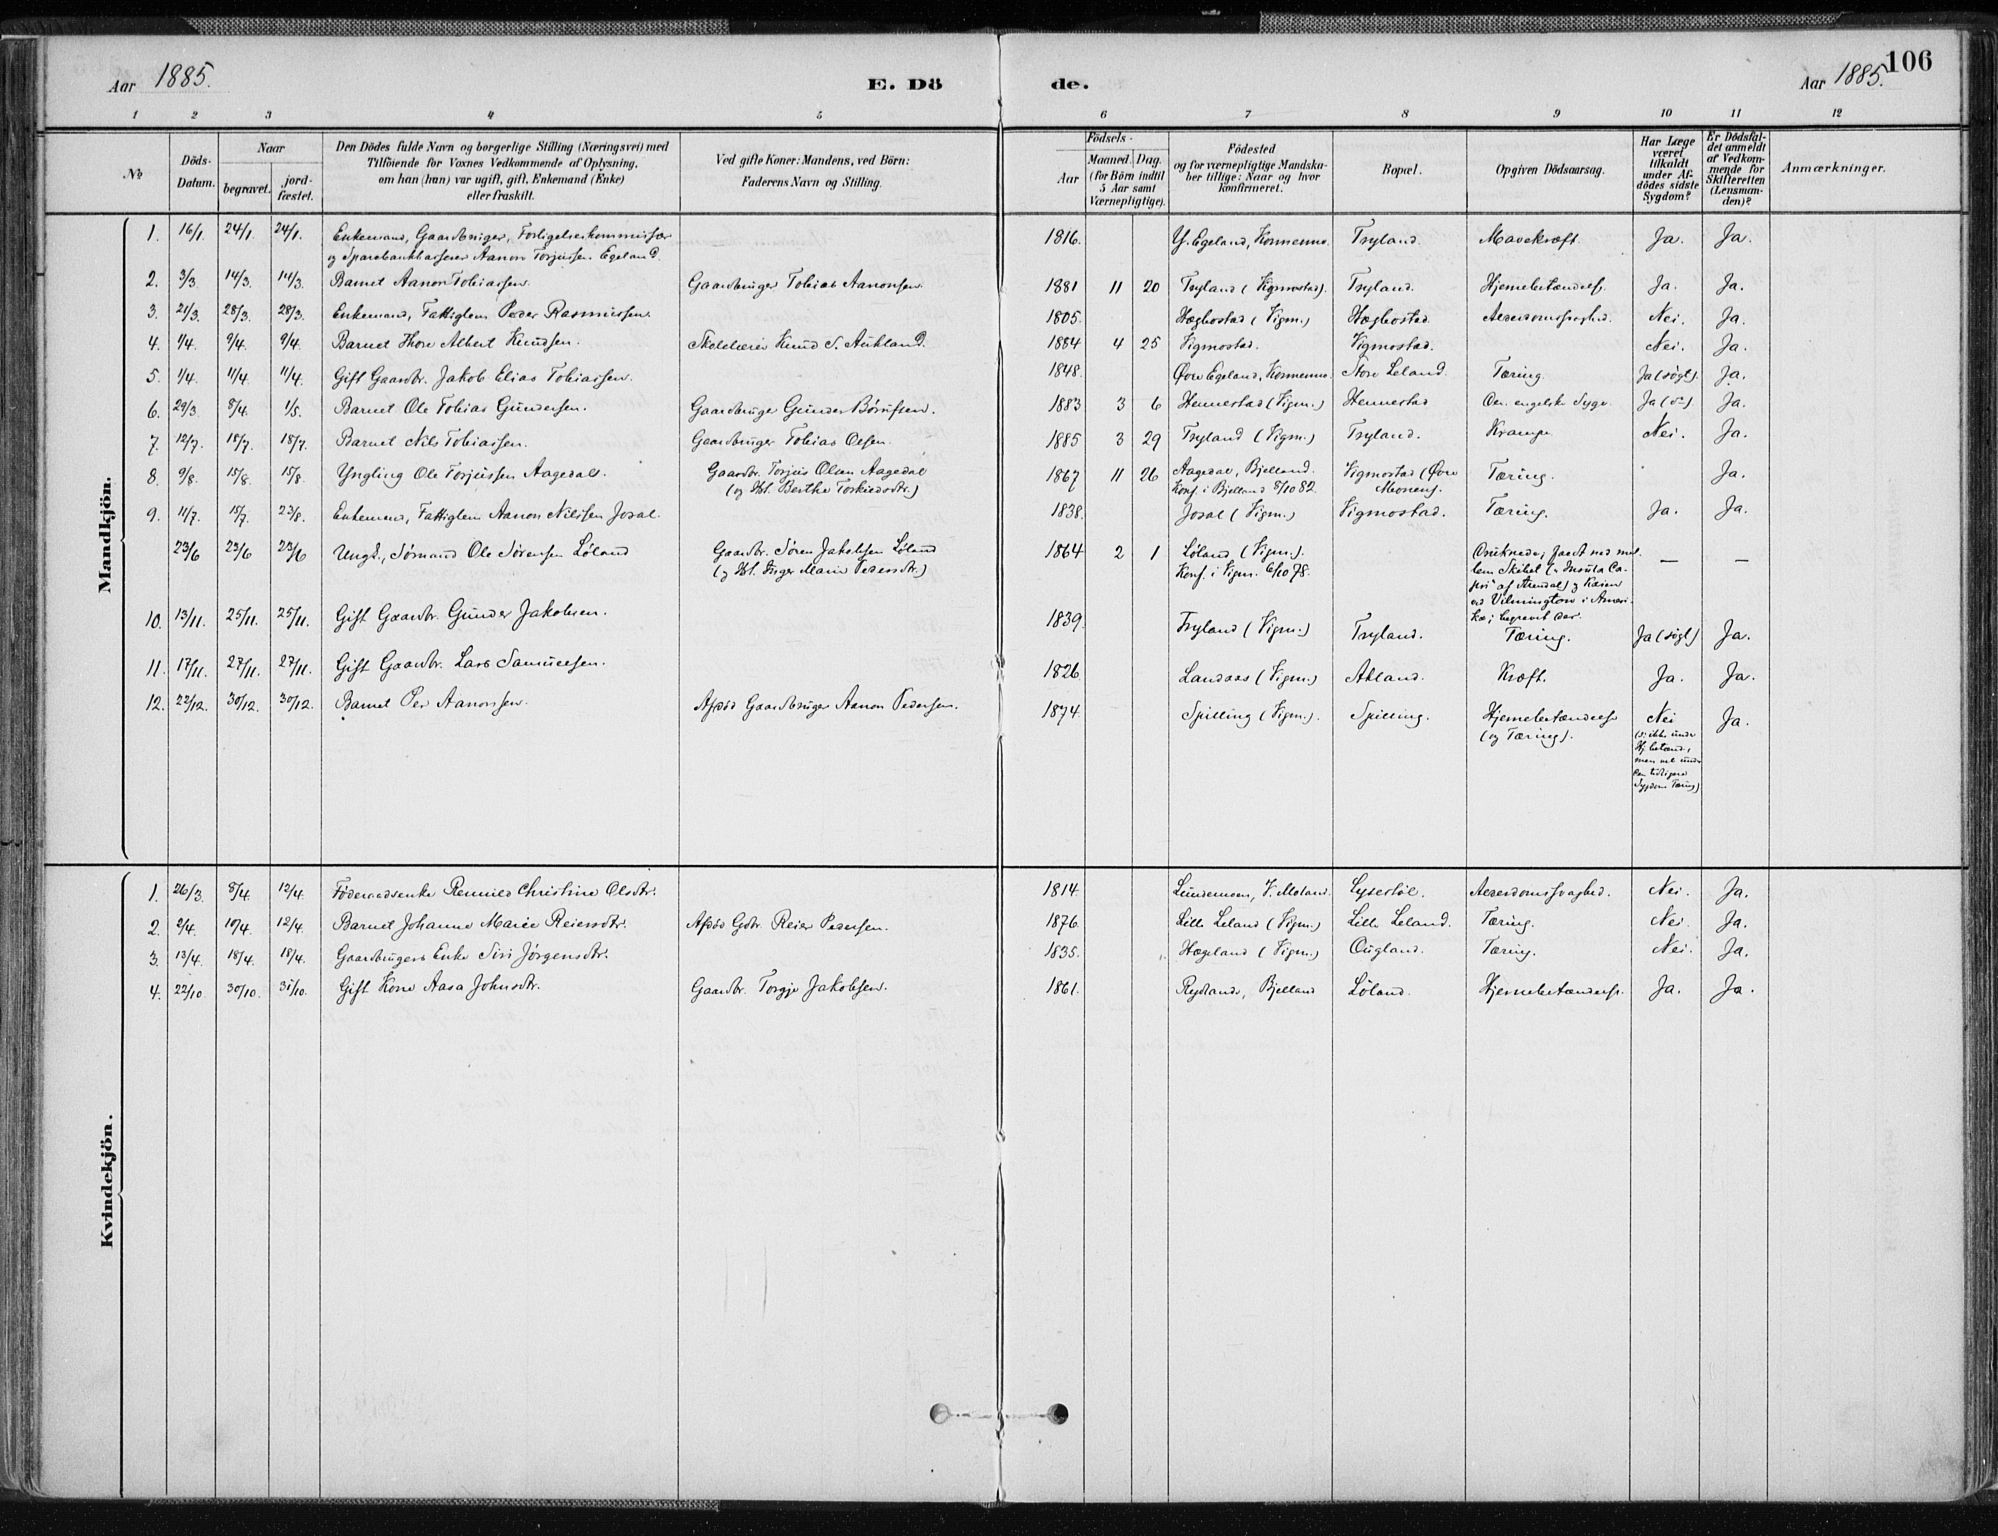 106
Aar 1885.
E. Dö
de.
Aar 1885.
1 2 3 4 5 6 7 8 9 10 11 12
№
Döds-Datum.
Naar
begravet.
jordfæstet.
Den Dödes fulde Navn og borgerlige Stilling (Næringsvei) med
Tilföiende for Voxnes Vedkommende af Oplysning,
om han (hun) var ugift, gift, Enkemand (Enke)
eller fraskilt.
Ved gifte Koner: Mandens, ved Börn:
Faderens Navn og Stilling.
Födsels-
Aar
Maaned. Dag.
(for Börn indtil
5 Aar samt
Værnepligtige).
Födested
og for værnepligtige Mandska-
ber tillige: Naar og hvor
Konfirmeret.
Bopæl.
Opgiven Dödsaarsag.
Har Læge
været
tilkaldt
under Af-
dödes sidste
Sygdom?
Er Dödsfal-
det anmeldt
af Vedkom-
mende for
Skifteretten
(Lensman-
den)?
Anmærkninger.
Mandkjön.
1. 16/1. 24/1. 24/1. Enkemand, Gaardbruger, Forligelseskommissær 1816. Y. Egeland, Konnesmo. Tryland. Mavekræft. Ja. Ja.
og Sparebankkasserer Aanon Torjussen Egeland.
2. 3/3. 14/3. 14/3. Barnet Aanon Tobiassen. Gaardbruger Tobias Aanonsen. 1881 11 20 Tryland (Vigmostad). Tryland. Hjernebetændelse. Ja. Ja.
3. 21/3. 28/3. 28/3. Enkemand, Fattiglem Peder Rasmussen. 1805. Hægbostad (Vigm.) Hægbostad. Alderdomssvaghed. Nei. Ja.
4. 1/4. 9/4. 9/4. Barnet Thore Albert Knudsen. Skolelærer Knud S. Aukland. 1884 4 25 Vigmostad. Vigmostad. Nei. Ja.
5. 1/4. 11/4. 11/4. Gift Gaardbr. Jakob Elias Tobiassen. 1848. Øvre Egeland, Konnesmo. Nore Leland. Tæring. Ja (søgt). Ja.
6. 29/3. 8/4. 1/5. Barnet Ole Tobias Gundersen. Gaardbruger Gunder Børufsen. 1883 3 6 Hennestad (Vigm.) Hennestad Den engelske Syge. Ja (do) Ja.
7. 12/7. 18/7. 18/7. Barnet Nils Tobiassen. Gaardbruger Tobias Olsen. 1885 3 29 Tryland (Vigm.) Tryland. Krampe Nei. Ja.
8. 9/8. 15/8. 15/8. Yngling Ole Torjussen Aagedal. Gaardbr. Torjus Olsen Aagedal 1867 11 26 Aagedal, Bjelland. Vigmostad (Øvre Tæring. Ja.
(og Hst. Berthe Torkildsdtr.) Konf. i Bjelland 8/10 82. Monen).
9. 11/7. 15/7. 23/8. Enkemand, Fattiglem Aanon Nilssen Josdal. 1838. Josdal (Vigm.) Vigmostad. Tæring. Ja. Ja.
23/6 23/6 23/6 Ungk., Sømand Ole Sørensen Løland Gaardbr. Søren Jakobsen Løland 1864 2 1 Løland (Vigm.). Druknede; faldt ned mel-
(og Hst. Inger Marie Pedersdtr.) Konf. i Vigm. 6/10 78. lem Skibet („Insula Ca-
pri" af Arendal) og Kaien — —
ved Vilmington i Ameri-
ka; begravet der.
10. 13/11. 25/11. 25/11. Gift Gaardbr. Gunder Jakobsen. 1839. Tryland (Vigm.) Tryland. Tæring. Ja (søgt) Ja.
11. 17/11. 27/11. 27/11. Gift Gaardbr. Lars Samuelsen. 1826. Landaas (Vigm.) Akland. Kræft. Ja. Ja.
12. 23/12. 30/12. 30/12. Barnet Per Aanonsen. Afdød Gaardbruger Aanon Pedersen. 1874. Spilling (Vigm.). Spilling. Hjernebetændelse Nei Ja.
(og Tæring). (o: ikke under
Hj.betænd.,
men vel under
den tidligere
Sygdom Tæring)
Kvindekjön.
1. 26/3. 8/4. 12/4. Føderaadsenke Remild Christine Olsdtr. 1814. Lundemoen, V. Moland. Lyserstøl. Alderdomssvaghed. Nei. Ja.
2. 2/4. 10/4. 12/4. Barnet Johanne Marie Reiersdtr. Afdød Gdbr. Reier Pedersen. 1876. Lille Leland (Vigm.) Lille Leland. Tæring. Nei. Ja.
3. 13/4. 18/4. 18/4. Gaardbrugers Enke Siri Jørgensdtr. 1835. Hægeland (Vigm.) Ougland. Tæring. Nei. Ja.
4. 22/10. 30/10. 31/10. Gift Kone Aasa Johnsdtr. Gaardbr. Torgje Jakobsen. 1861. Rydland, Bjelland Løland. Hjernebetændelse. Ja. Ja.